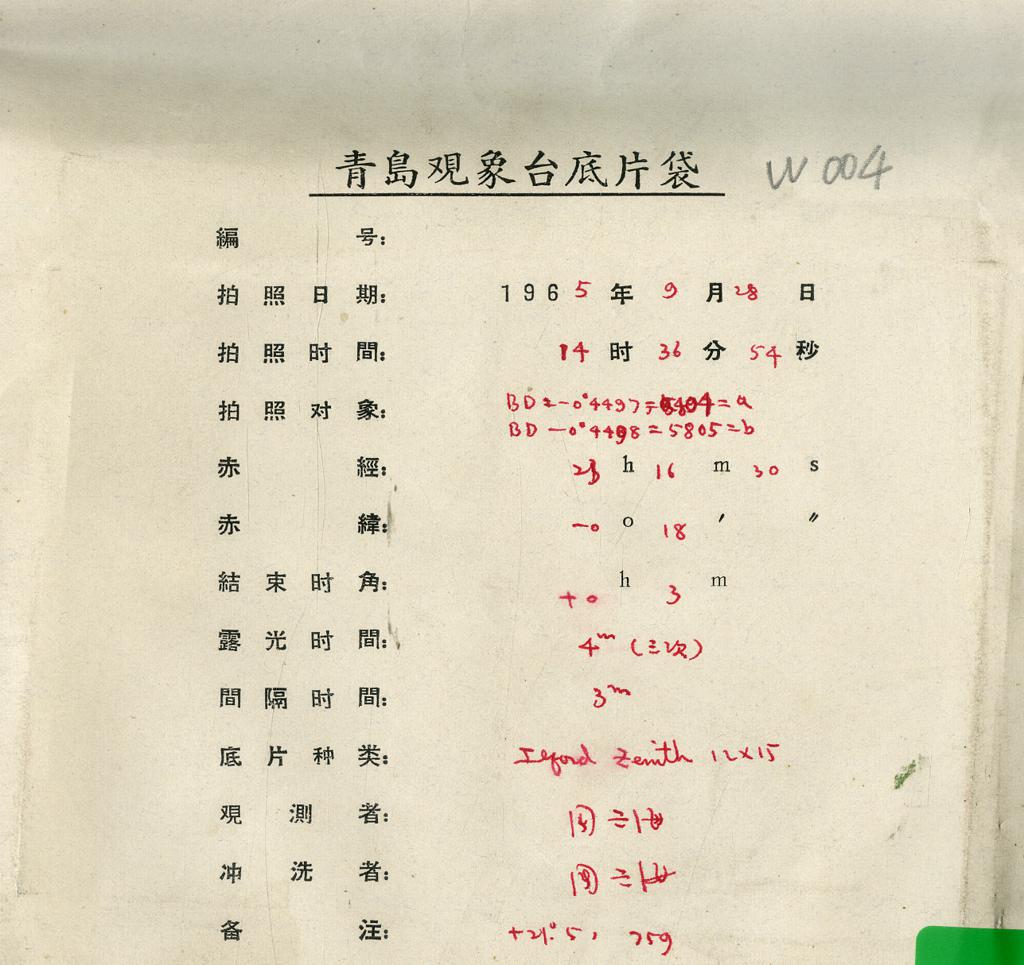 青島观象台底片袋 W 004
編号:
拍照日期: 1965年9月28日
拍照时間: 14时36分54秒
拍照对象: BD = -0°4497 = 5804 = a
BD -0°4498 = 5805 = b
赤經: 23h 16m 30s
赤緯: -0° 18′ ″
結束时角: +0h 3m
露光时間: 4ᵐ (三次)
間隔时間: 3ᵐ
底片种类: Ilford Zenith 12×15
观測者:
冲洗者:
备注: +21°.5, 759